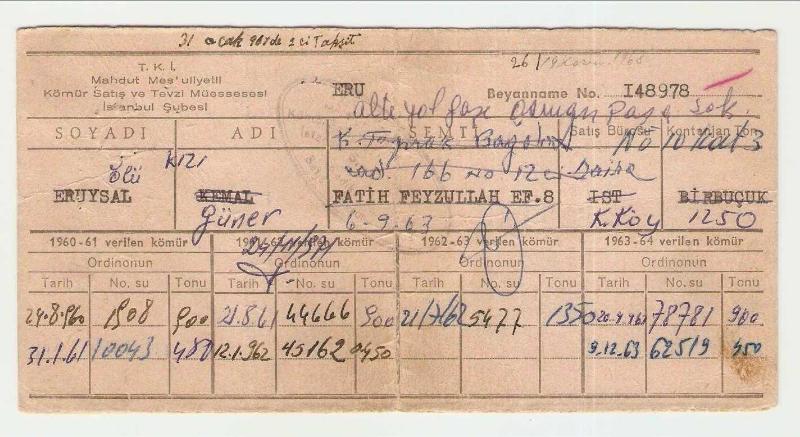 31 ocak 961 de 2 ci Taksit
26/
T. K. İ.
Mahdut Mes'uliyetli
Kömür Satış ve Tevzi Müessesesi
İstanbul Şubesi
ERU
Beyanname No. I48978
Osman paşa Sok.
SOYADI ADI SEMTİ Satış Bürosu Kontenjan Ton
K. Toprak No 10 Kat 3
Ölü kızı
cad. 166 No 12 ci Daire
ERUYSAL KEMAL FATİH FEYZULLAH EF.8 IST BİRBUÇUK
Güner 6-9-63 K.Köy 1250
1960-61 verilen kömür 1961-62 verilen kömür 1962-63 verilen kömür 1963-64 verilen kömür
Ordinonun Ordinonun Ordinonun Ordinonun
Tarih No. su Tonu Tarih No. su Tonu Tarih No. su Tonu Tarih No. su Tonu
24.8.960 1908 900 21.8.61 44666 900 21/7/62 5477 1350 78781 900
31.1.61 10043 480 12.1.962 45162 0450 9.12.63 62519 450